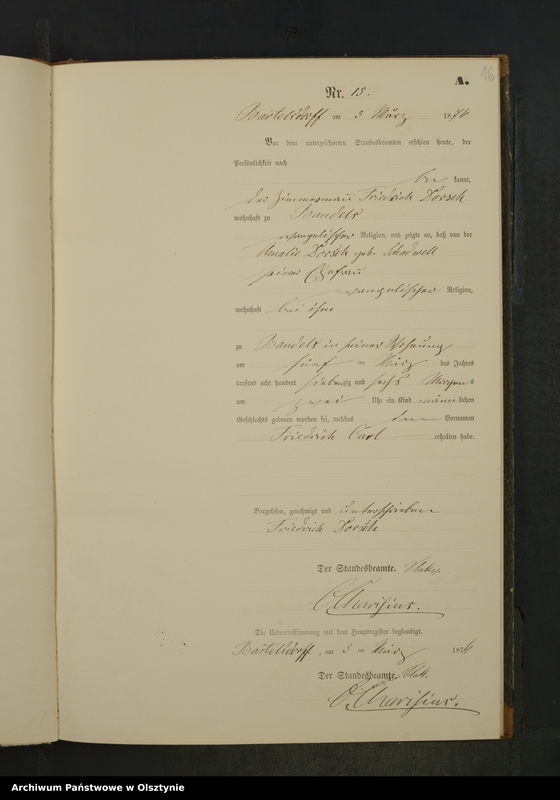 A.
16
Nr. 15.
Bartelsdorff am 3 März 187
Vor dem unterzeichneten Standesbeamten erschien heute, der
Persönlichkeit nach
be kannt,
der Zimmermann Friedrich Dorsch
wohnhaft zu Bandels
evangelischer Religion, und zeigte an, daß von der
Amalie Dorsch geb. Schadwell
seiner Ehefrau
evangelischer Religion,
wohnhaft bei ihm
zu Bandels in seiner Wohnung
am fünf März des Jahres
tausend acht hundert siebenzig und sechs Morgens
um zwei Uhr ein Kind männlichen
Geschlechts geboren worden sei, welches den Vornamen
Friedrich Carl erhalten habe.
Vorgelesen, genehmigt und unterschrieben
Friedrich Dorsch
Der Standesbeamte.
Die Uebereinstimmung mit dem Hauptregister beglaubigt.
Bartelsdorff, am 3 März 187
Der Standesbeamte.
Archiwum Państwowe w Olsztynie